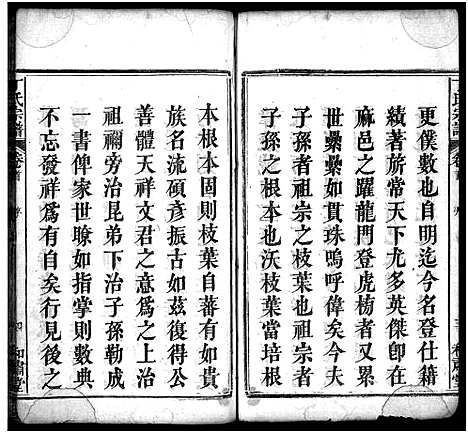 更僕數也自明迄今名登仕籍
績著旂常天下尤多英傑卽在
麻邑之躍龍門登虎榜者亦世
世纍纍貫珠嗚呼偉矣今夫
子孫者祖宗之枝葉也祖宗者
子孫之根本也沃枝葉當培根
丁氏宗譜
卷首
四
和肅堂
本根本固則枝葉自發有如貴
族名流碩彥振古如茲復得公
善體天祥文君之意爲之上治
祖禰旁治昆弟下治子孫勒成
一書俾家世瞭如指掌則數典
不忘發祥爲有自矣行見後之